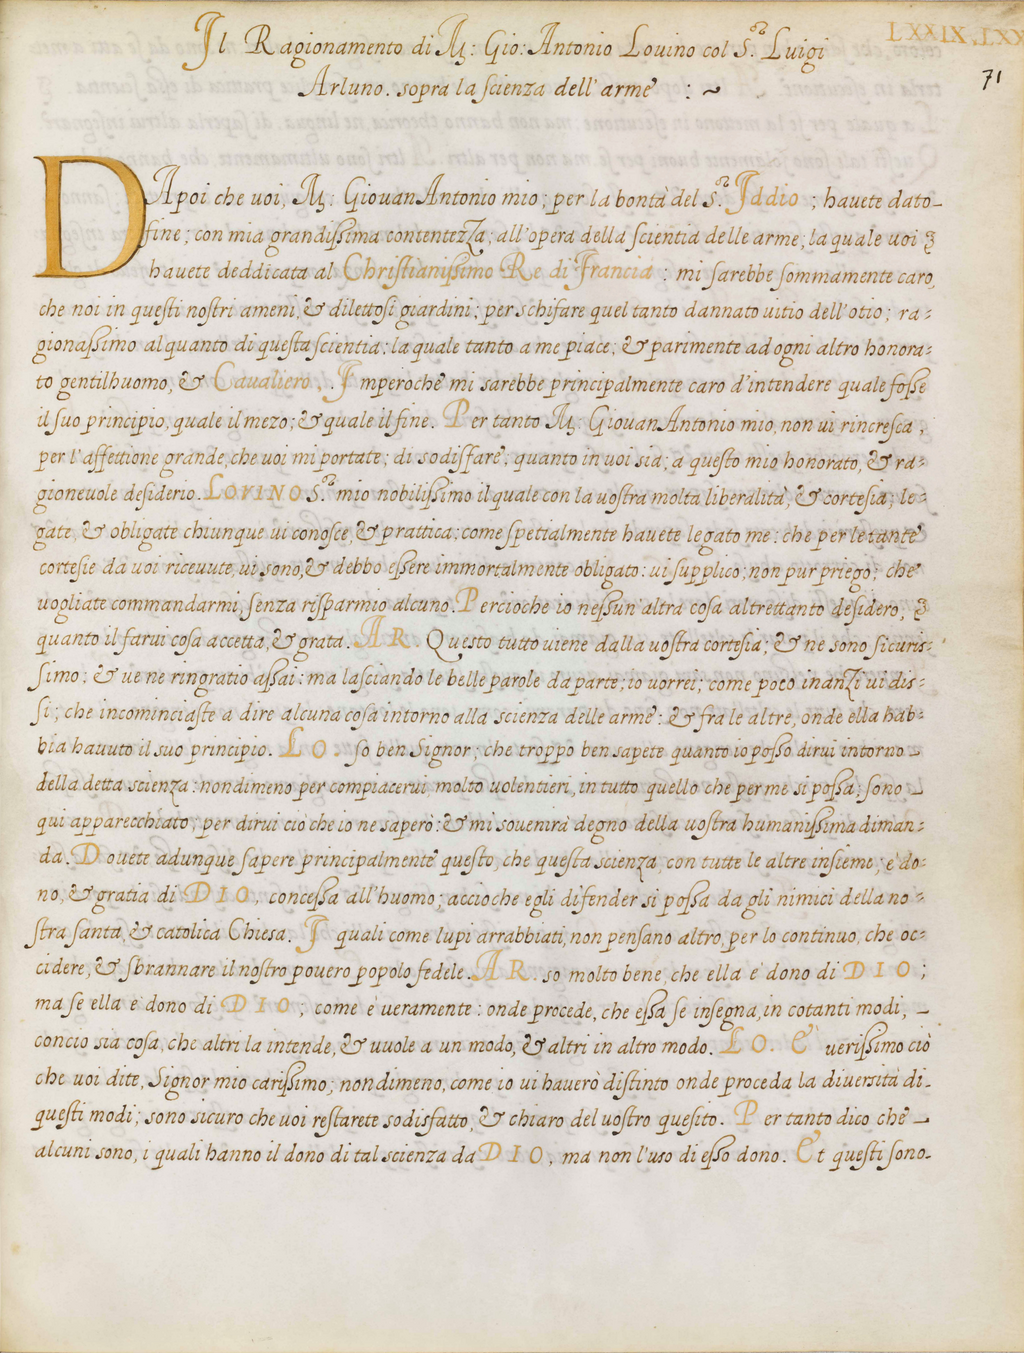 Il Ragionamento di M: Gio: Antonio Lovino col S.or Luigi
LXXIX, LXX
71
Arluno. sopra la scienza dell'arme :~
DApoi che voi, M: Giovan Antonio mio; per la bontà del S.or Iddio; havete dato
fine; con mia grandissima contentezza; all'opera della scientia delle arme, la quale voi
havete deddicata al Christianissimo Re di Francia: mi sarebbe sommamente caro,
che noi in questi nostri ameni, & dilettosi giardini; per schifare quel tanto dannato uitio dell'otio; ra=
gionassimo alquanto di questa scientia: la quale tanto a me piace; & parimente ad ogni altro honora=
to gentilhuomo, & Cavaliero. Imperoche mi sarebbe principalmente caro d'intendere quale fosse
il suo principio, quale il mezo; & quale il fine. Per tanto M: Giovan Antonio mio, non ui rincresca,
per l'affettione grande, che voi mi portate; di sodisfare, quanto in voi sia; a questo mio honorato, & ra=
gionevole desiderio. LOVINO S.or mio nobilissimo il quale con la uostra molta liberalità, & cortesia; le=
gate, & obligate chiunque ui conosce, & prattica: come spetialmente havete legato me: che per le tante
cortesie da voi ricevute, ui sono, & debbo essere immortalmente obligato: ui supplico; non pur priego; che
uogliate commandarmi, senza risparmio alcuno. Percioche io nessun'altra cosa altrettanto desidero,
quanto il farui cosa accetta, & grata. AR. Questo tutto uiene dalla uostra cortesia; & ne sono sicuris=
simo; & ue ne ringratio assai: ma lasciando le belle parole da parte; io uorrei; come poco inanzi ui dis=
si; che incominciaste a dire alcuna cosa intorno alla scienza delle arme: & fra le altre, onde ella hab=
bia havuto il suo principio. LO. so ben Signor; che troppo ben sapete quanto io posso dirui intorno
della detta scienza: nondimeno per compiacerui molto uolentieri, in tutto quello che per me si possa; sono
qui apparecchiato; per dirui ciò che io ne saperò: & mi souenirà degno della uostra humanissima diman=
da. Dovete adunque sapere principalmente questo, che questa scienza, con tutte le altre insieme, è do=
no, & gratia di DIO, concessa all'huomo; accioche egli difender si possa da gli nimici della no=
stra santa, & catolica Chiesa. I quali come lupi arrabbiati, non pensano altro, per lo continuo, che oc=
cidere, & sbrannare il nostro povero popolo fedele. AR. so molto bene, che ella è dono di DIO;
ma se ella è dono di DIO; come è ueramente: onde procede, che essa se insegna, in cotanti modi,
concio sia cosa, che altri la intende, & vuole a un modo, & altri in altro modo. LO. È verissimo ciò
che voi dite, Signor mio carissimo; nondimeno, come io ui haverò distinto onde proceda la diversità di
questi modi; sono sicuro che voi restarete sodisfatto, & chiaro del uostro quesito. Per tanto dico che
alcuni sono, i quali hanno il dono di tal scienza da DIO, ma non l'uso di esso dono. Et questi sono